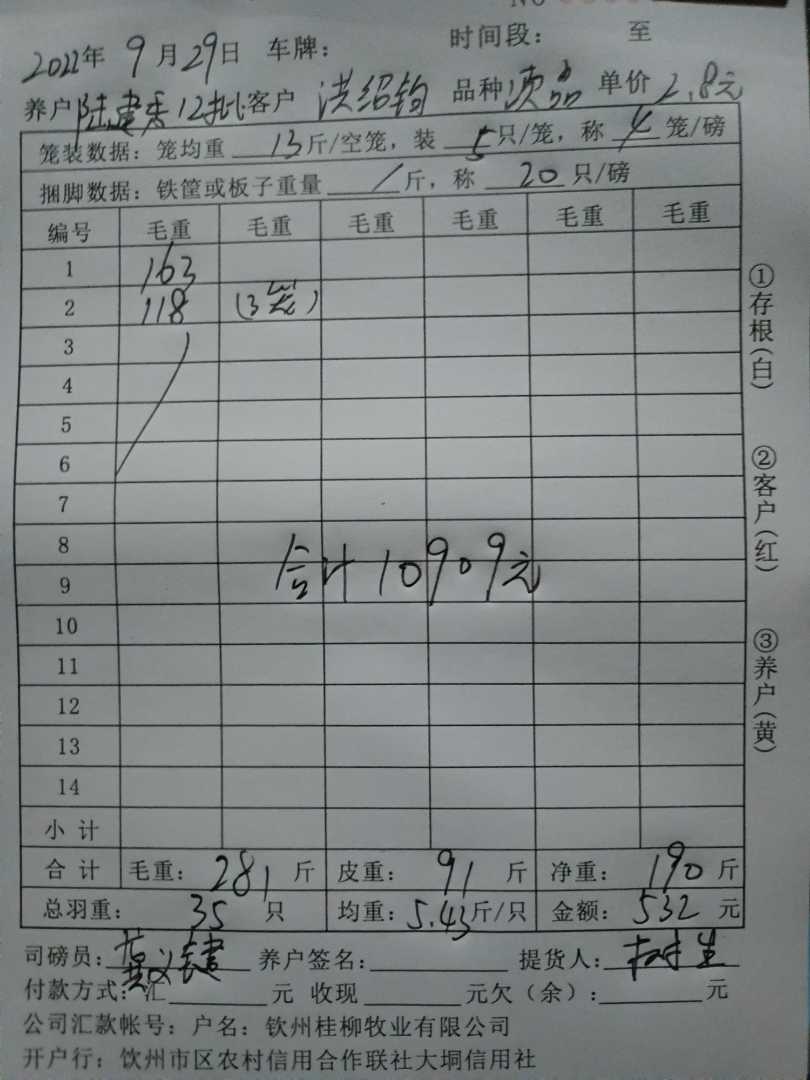 NO
2022年 9月29日 车牌： 时间段： 至
养户 陆建秀12批 客户 洪绍钧 品种 次品 单价 2.8元
笼装数据：笼均重 13 斤/空笼，装 5 只/笼，称 4 笼/磅
捆脚数据：铁筐或板子重量 / 斤，称 20 只/磅
编号 毛重 毛重 毛重 毛重 毛重 毛重
1 163
2 118 (3笼)
3
4
5
6
7
8
合计10909元
9
10
11
12
13
14
小 计
合 计 毛重：281斤 皮重：91斤 净重：190斤
总羽重：35只 均重：5.43斤/只 金额：532元
司磅员： 养户签名： 提货人：
付款方式：汇 元 收现 元欠（余）： 元
公司汇款帐号：户名：钦州桂柳牧业有限公司
开户行：饮州市区农村信用合作联社大垌信用社
①存根（白）
②客户（红）
③养户（黄）